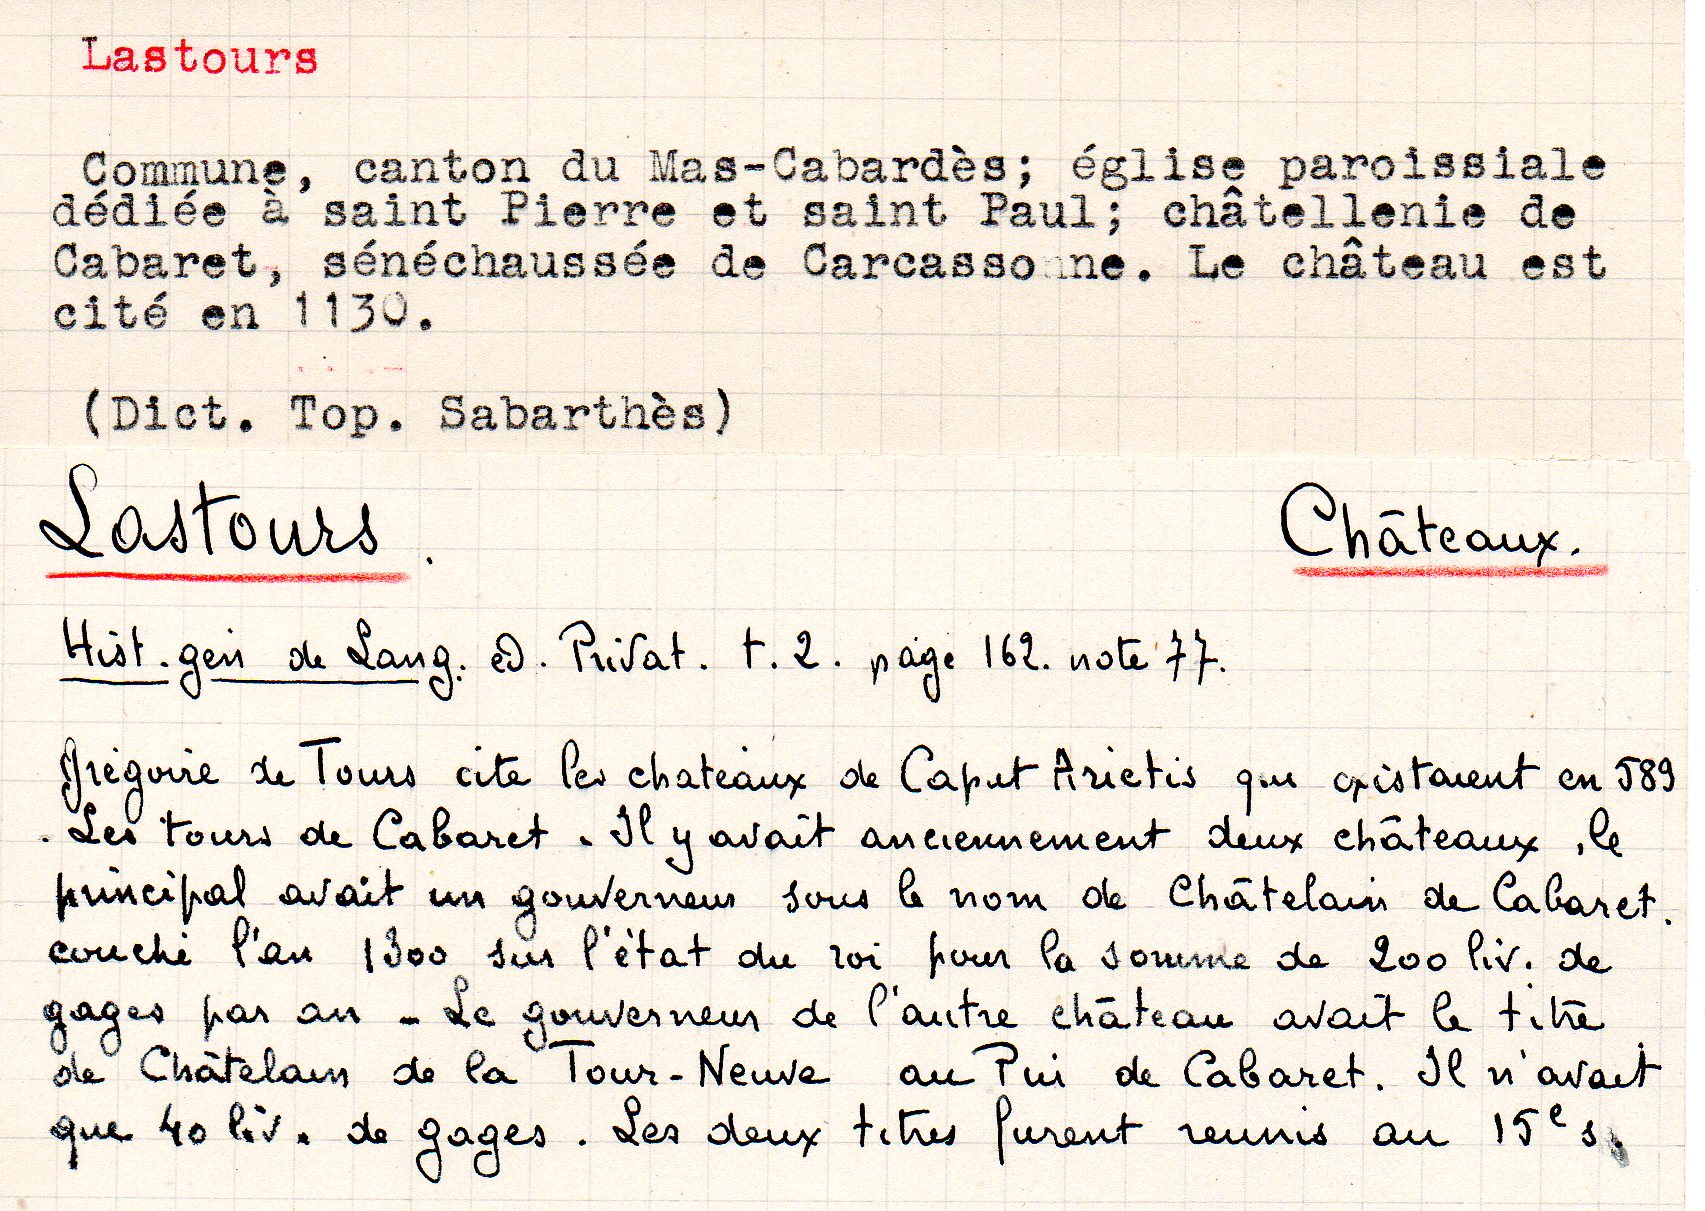 Lastours
Commune, canton du Mas-Cabardès; église paroissiale
dédiée à saint Pierre et saint Paul; châtellenie de
Cabaret, sénéchaussée de Carcassonne. Le château est
cité en 1130.
(Dict. Top. Sabarthès)
Lastours. Châteaux.
Hist. gén de Lang. éd. Privat. t. 2. page 162. note 77.
Grégoire de Tours cite les chateaux de Caput Arietis qui existaient en 589
. Les tours de Cabaret. Il y avait anciennement deux châteaux, le
principal avait un gouverneur sous le nom de Châtelain de Cabaret.
couché l'an 1300 sur l'état du roi pour la somme de 200 liv. de
gages par an - Le gouverneur de l'autre château avait le titre
de Châtelain de la Tour-Neuve au Pui de Cabaret. Il n'avait
que 40 liv. de gages. Les deux titres furent reunis au 15e s.